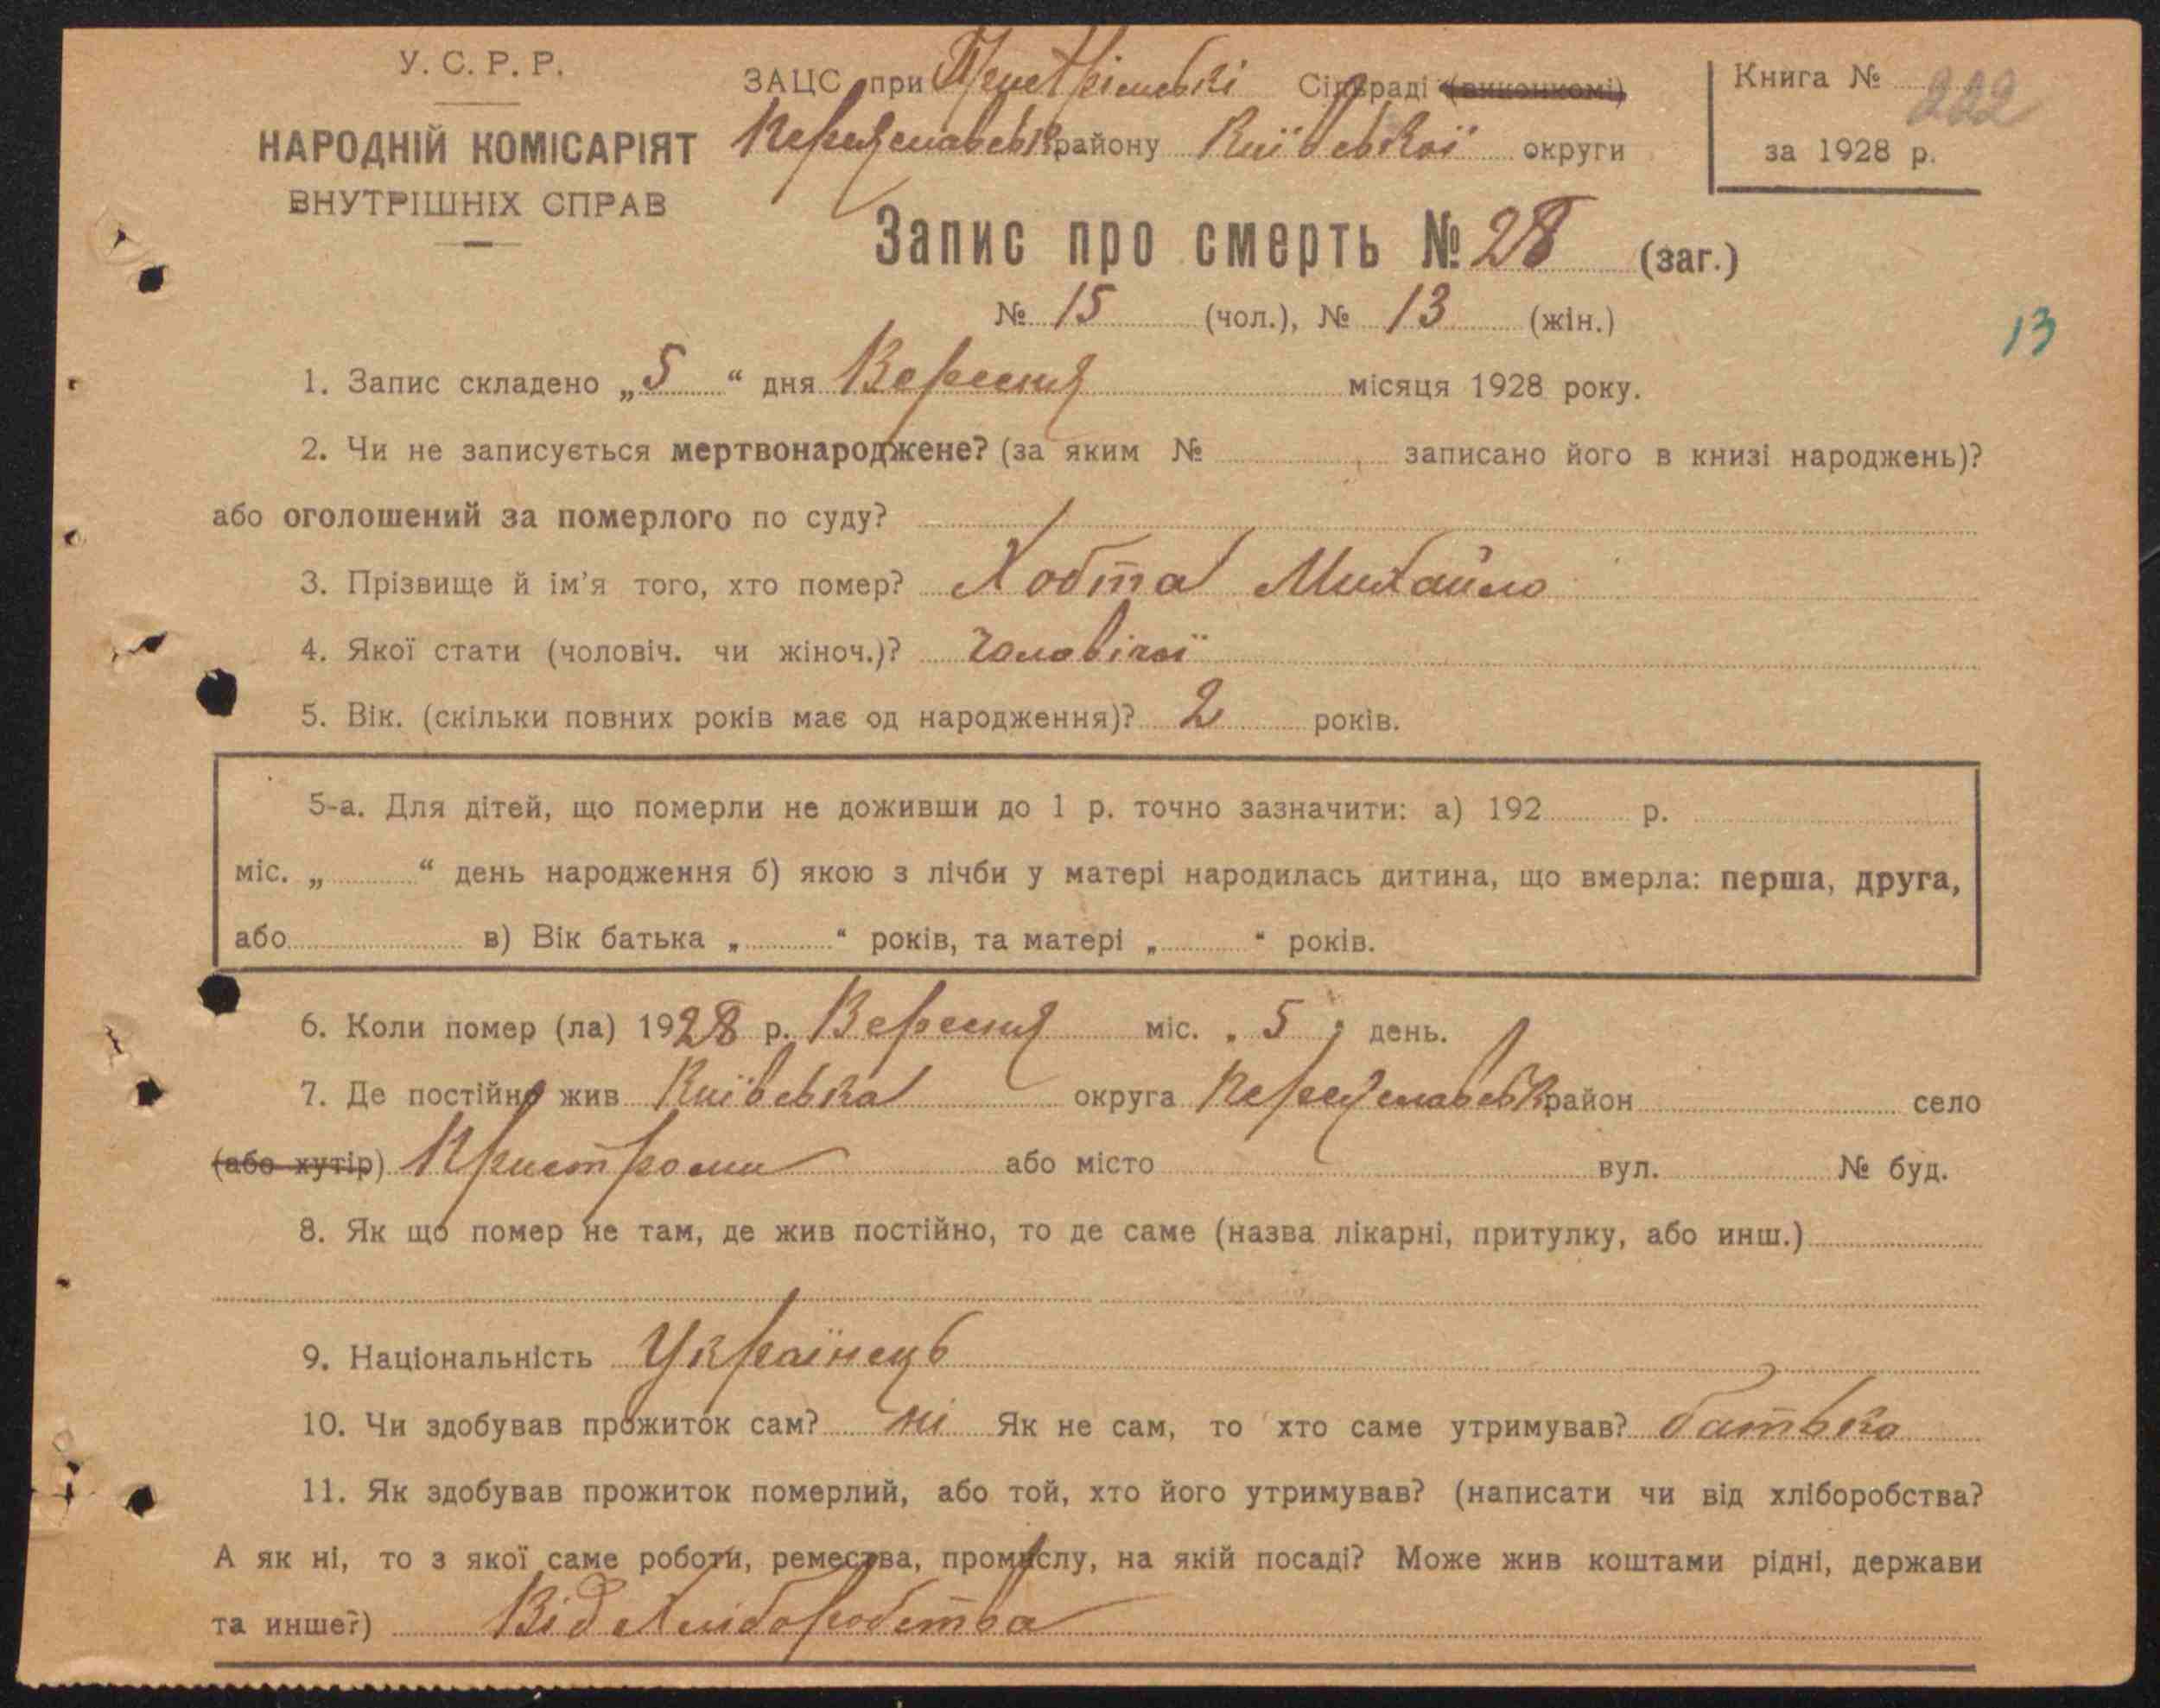 У. С. Р. Р.
НАРОДНІЙ КОМІСАРІЯТ
ВНУТРІШНІХ СПРАВ
ЗАЦС при Сільраді (виконкомі)
Переяславськ району Київської округи
Книга № 222
за 1928 р.
Запис про смерть № 28 (заг.)
№ 15 (чол.), № 13 (жін.)
13
1. Запис складено „5“ дня Вересня місяця 1928 року.
2. Чи не записується мертвонароджене? (за яким № записано його в книзі народжень)?
або оголошений за померлого по суду?
3. Прізвище й ім'я того, хто помер? Хобта Михайло
4. Якої стати (чоловіч. чи жіноч.)? Чоловічої
5. Вік. (скільки повних років має од народження)? 2 років.
5-а. Для дітей, що померли не доживши до 1 р. точно зазначити: а) 192 р.
міс. „ “ день народження б) якою з лічби у матері народилась дитина, що вмерла: перша, друга,
або в) Вік батька „ “ років, та матері „ “ років.
6. Коли помер (ла) 1928 р. Вересня міс. „5“ день.
7. Де постійно жив Київська округа Переяславськ район село
(або хутір) або місто вул. № буд.
8. Як що помер не там, де жив постійно, то де саме (назва лікарні, притулку, або инш.)
9. Національність Українець
10. Чи здобував прожиток сам? ні Як не сам, то хто саме утримував? батько
11. Як здобував прожиток померлий, або той, хто його утримував? (написати чи від хліборобства?
А як ні, то з якої саме роботи, ремества, промислу, на якій посаді? Може жив коштами рідні, держави
та инше?) Від Хліборобства